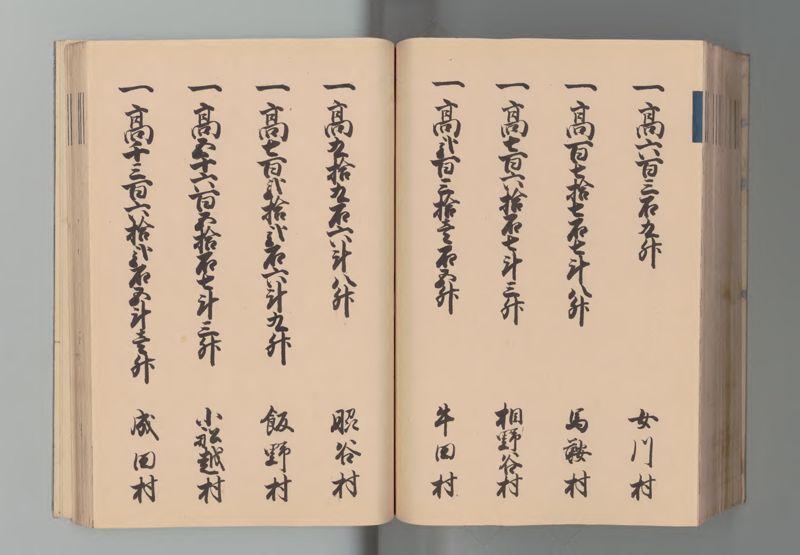 一高六百三石九升 女川村
一高百七拾七石七斗八升 馬鞍村
一高七百六拾石七斗三升 相野谷村
一高弐百三拾壱石五升 牛田村
一高九拾九石六斗八升 昭谷村
一高七百弐拾弐石六斗九升 飯野村
一高五千六百五拾石七斗三升 小船越村
一高千三百六拾弐石五斗壱升 成田村